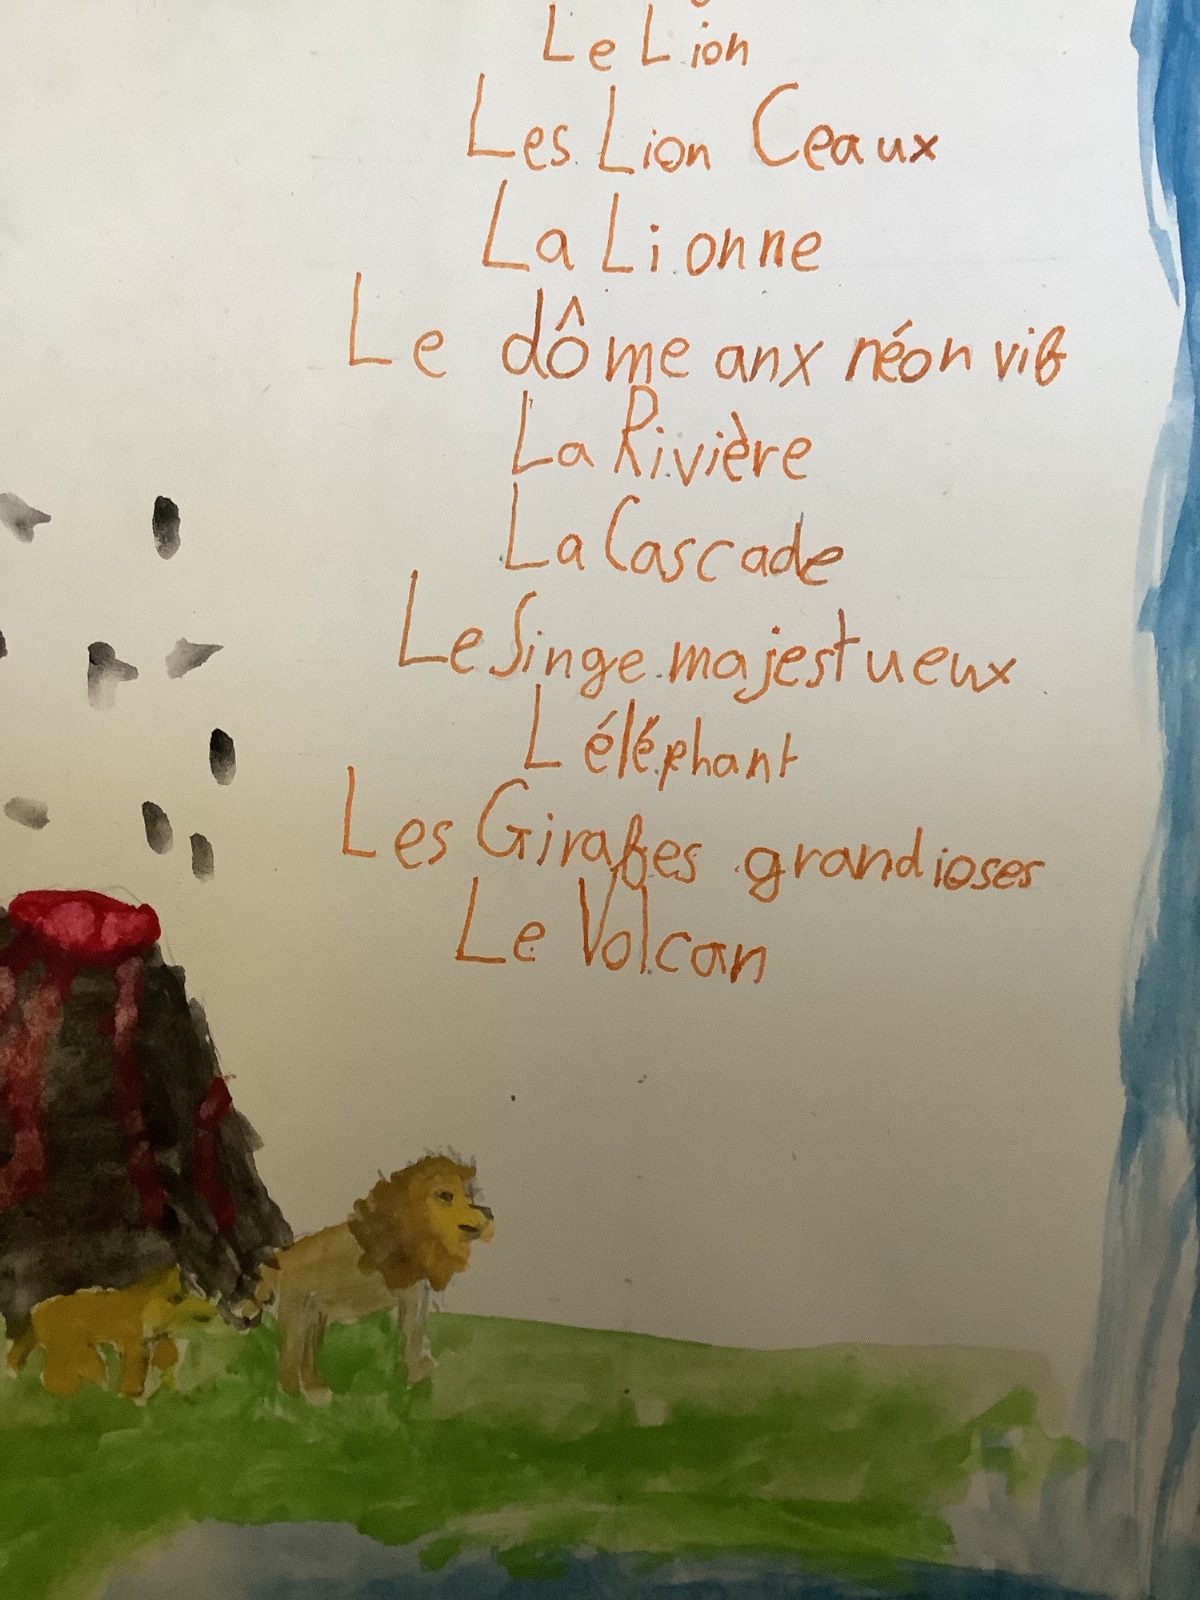 Le Lion
Les Lion Ceaux
La Lionne
Le dôme anx néon vif
La Rivière
La Cascade
Le Singe majestueux
L éléphant
Les Girafes grandioses
Le Volcan